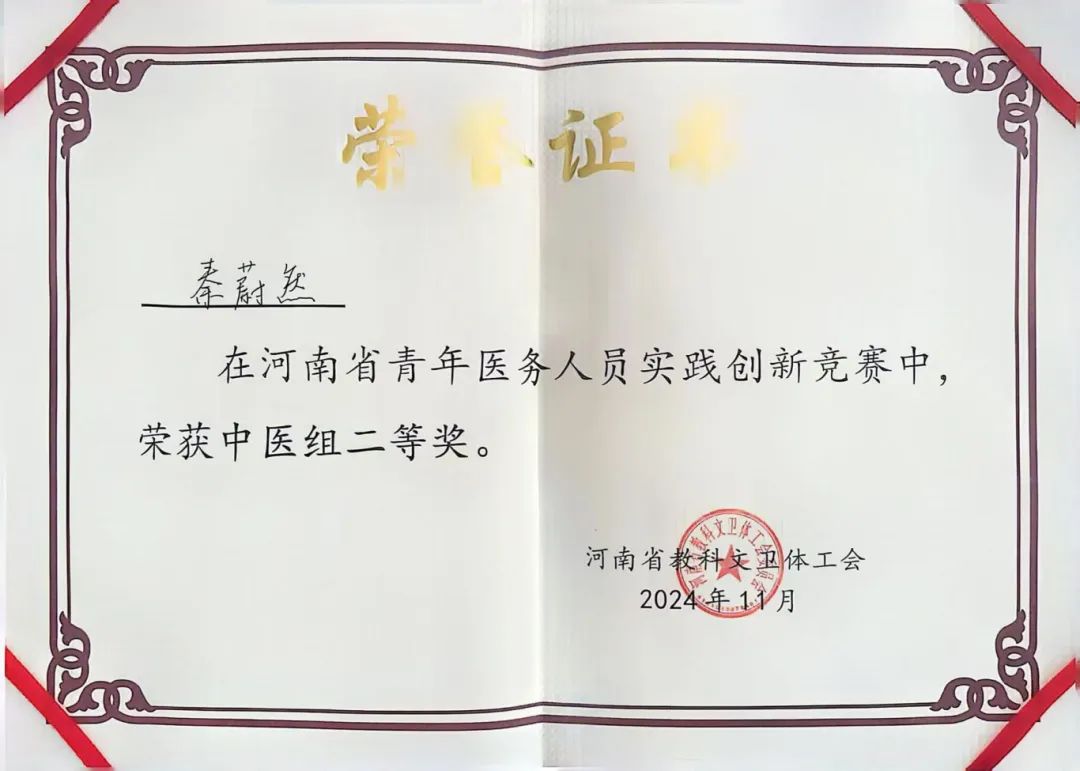 荣誉证书
秦蔚然
在河南省青年医务人员实践创新竞赛中，
荣获中医组二等奖。
河南省教科文卫体工会
2024年11月